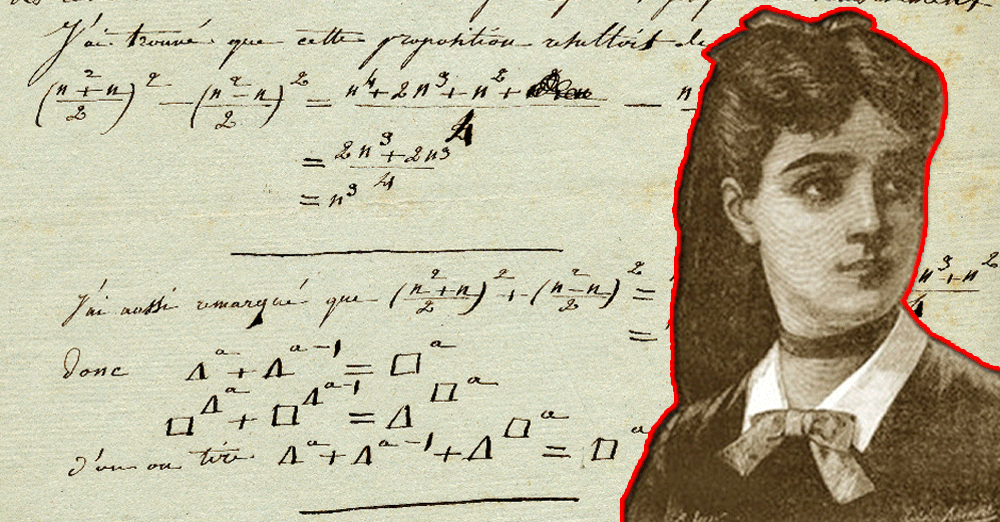 J'ai trouvé que cette proposition resultoit de
(n²+n/2)² − (n²−n/2)² = n⁴+2n³+n²+ / 4 − n
= 2n³+2n³/4
= n³
J'ai aussi remarqué que (n²+n/2)² + (n²−n/2)² = n³+n²
=
donc Δᵃ + Δᵃ⁻¹ = □ᵃ
□Δᵃ + □Δᵃ⁻¹ = Δ□ᵃ
d'où on tire Δᵃ + Δᵃ⁻¹ + Δ□ᵃ = □ᵃ